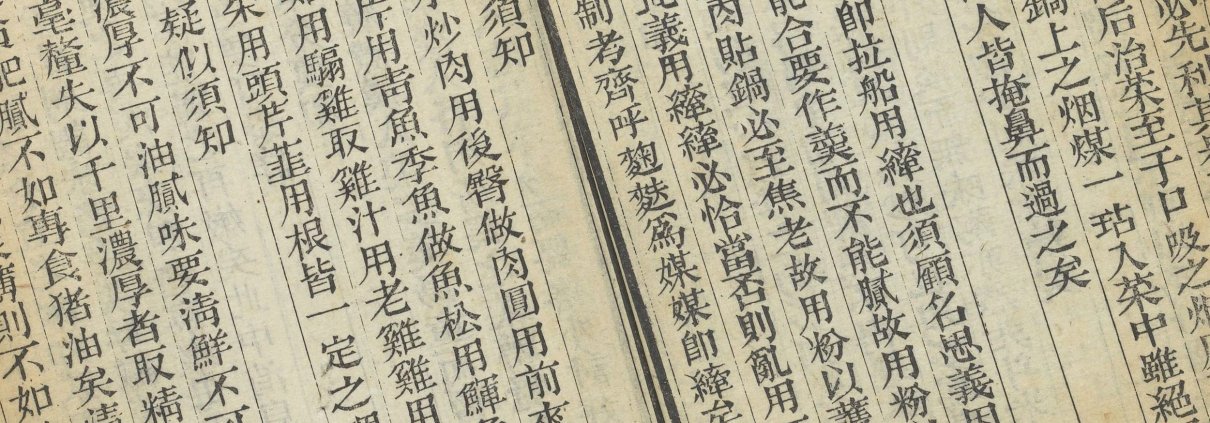 必先利其
后治菜至于口吸之烟
鍋上之烟煤一玷入菜中雖絕
人皆掩鼻而過之矣
即拉船用縴也須顧名思義因
能合要作羹而不能膩故用粉
肉貼鍋必至焦老故用粉以護
義用縴縴必恰當否則亂用
制考齊呼麴麩爲媒媒即縴矣
須知
炒肉用後臀做肉圓用前夾
片用靑魚季魚做魚松用鯶
用騸雞取雞汁用老雞雞用
菜用頭芹韮用根皆一定之
疑似須知
濃厚不可油膩味要淸鮮不可
毫釐失以千里濃厚者取精
肥膩不如專食猪油矣淸
薄則不如